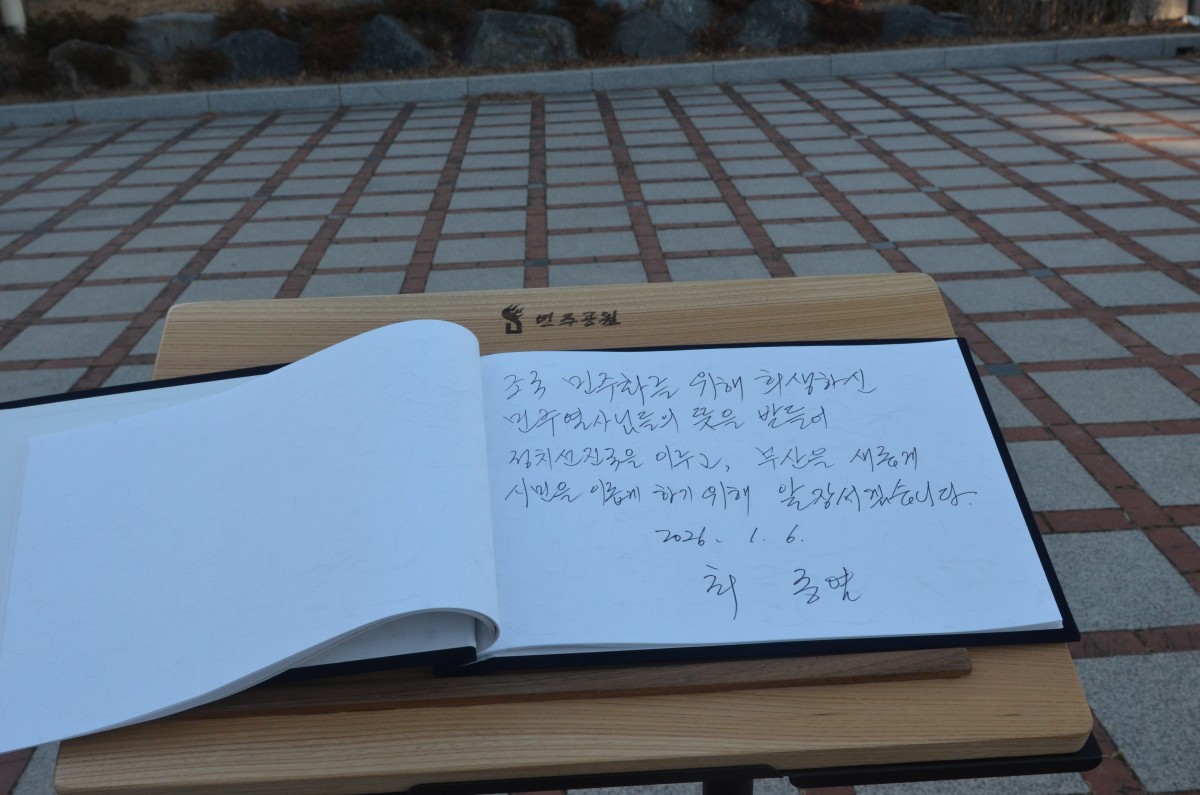 민주공원
조국 민주화를 위해 희생하신
민주열사님들의 뜻을 받들어
정치선진국을 이루고, 부산을 새롭게
시민을 이롭게 하기 위해 앞장서겠습니다.
2026. 1. 6.
최 종열